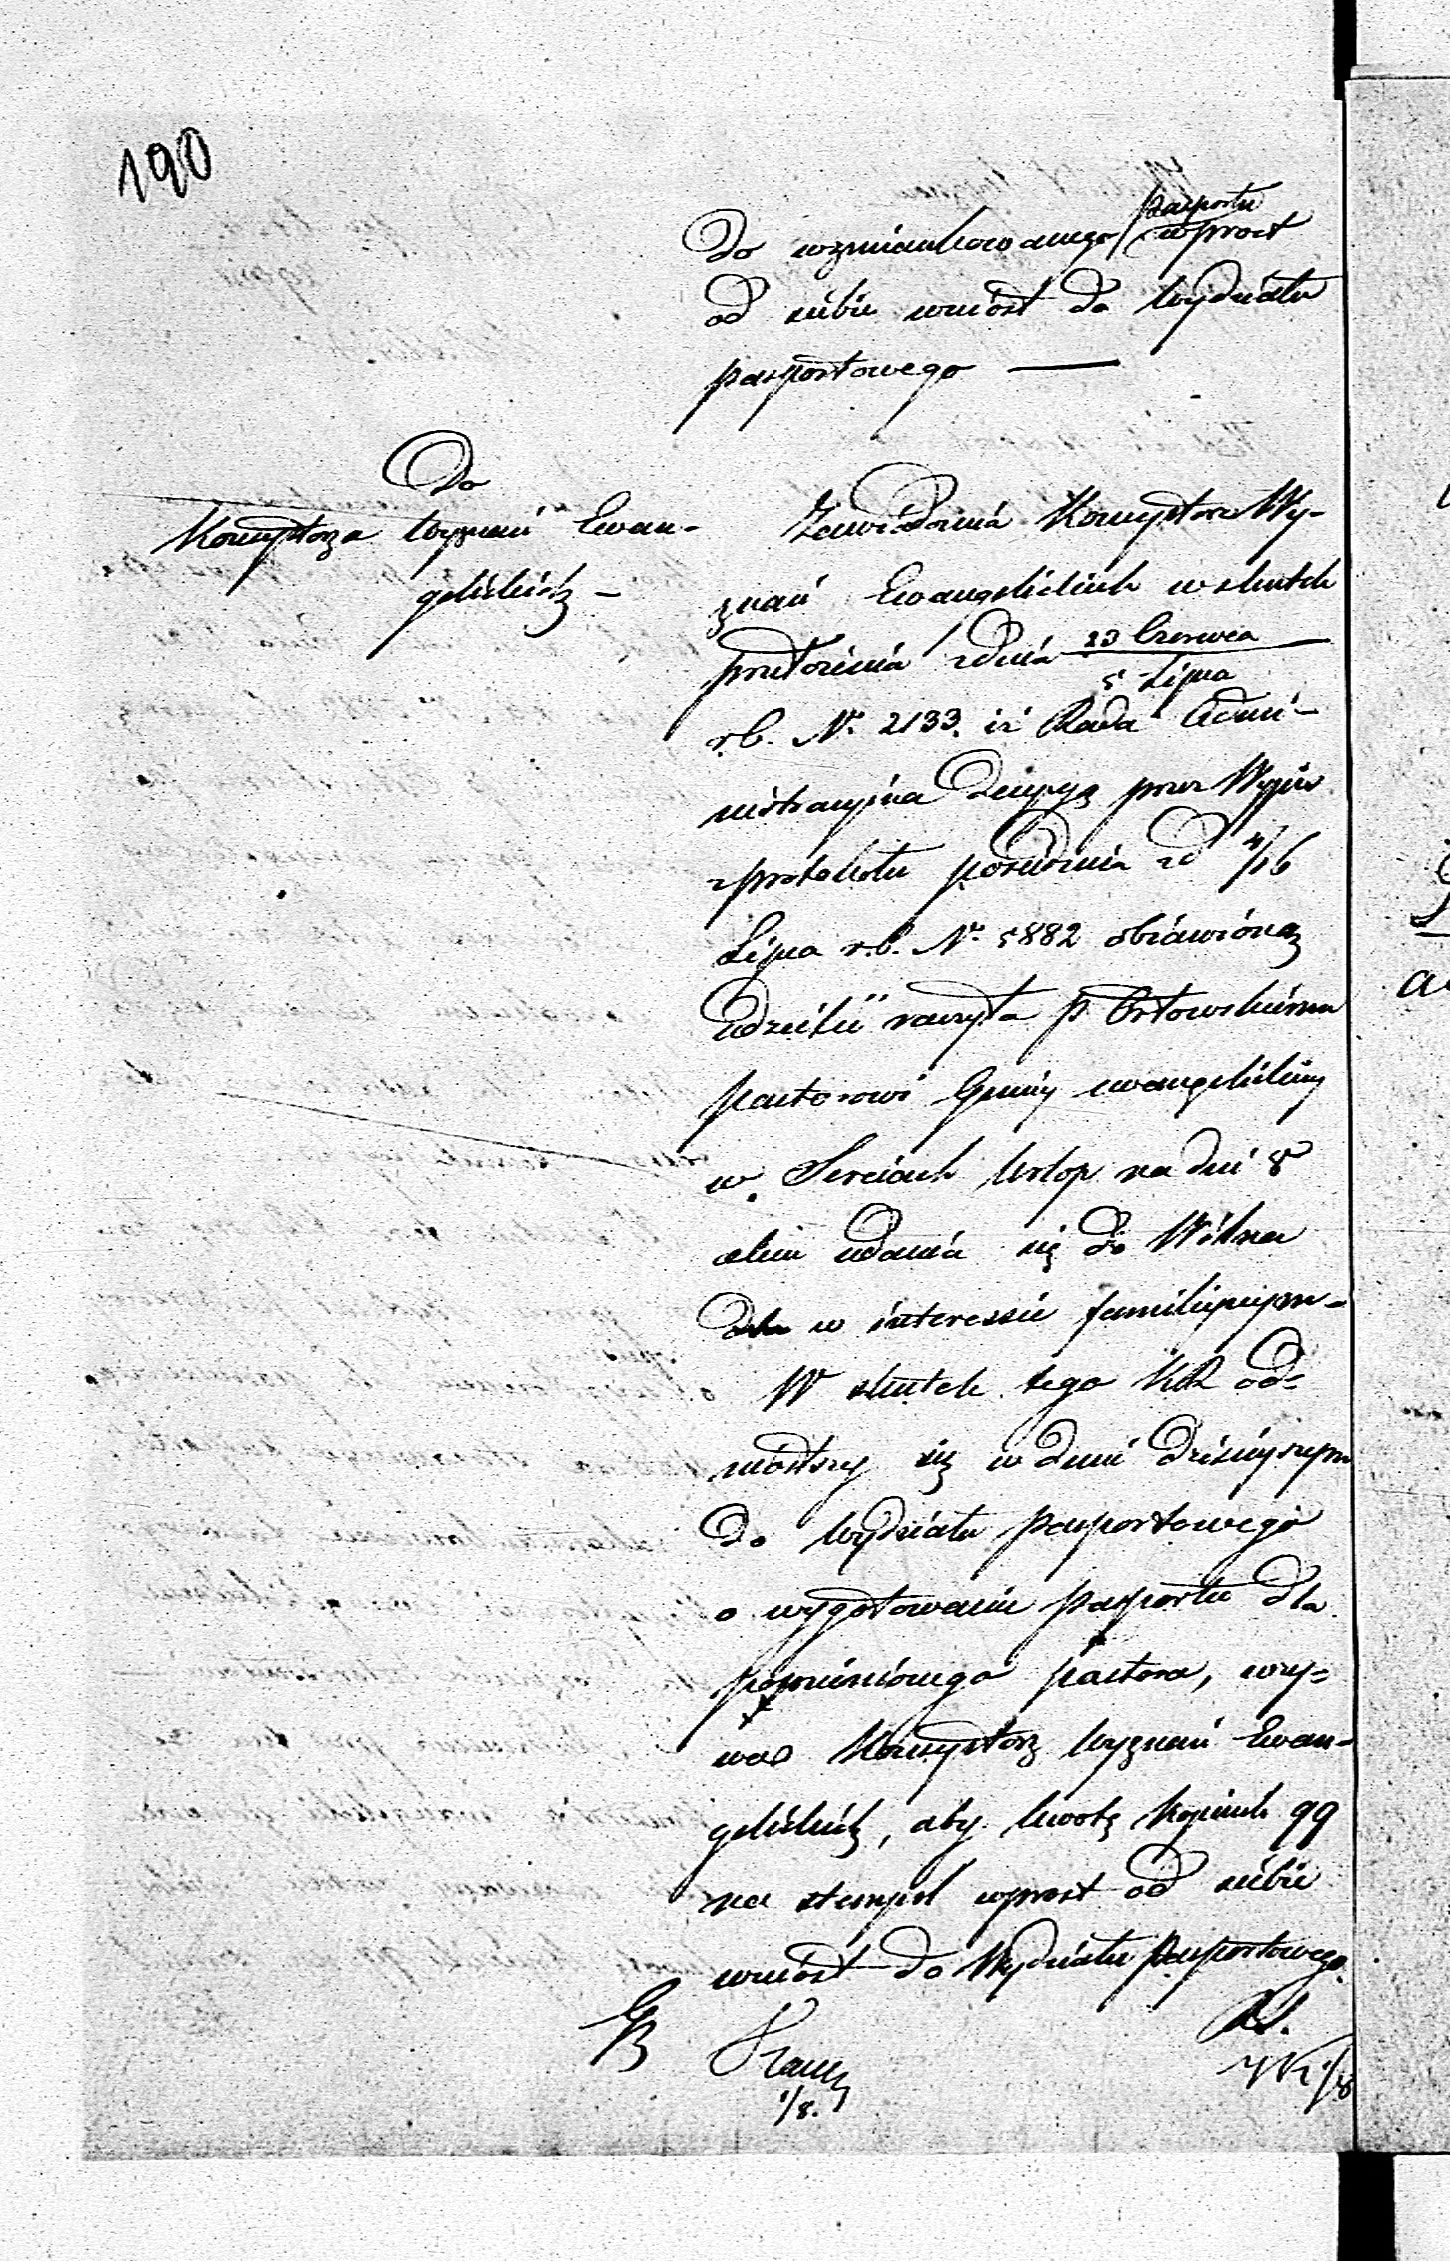 190
pasportu
do wzmiankowanego wprost
od siebie wniósł do Wydziału
pasportowego —
Do
Konsystorza Wyznań Ewan-
gelickich —
Zawiadomia Konsystorz Wy-
znań Ewangelickich w skutek
przełożenia z dnia 23 Czerwca
5 Lipca
r.b. N. 2133. iż Rada Admi-
nistracyjna decyzyą przez Wypis
z protokołu posiedzenia z d 4/16
Lipca r.b. N. 5882 obiawioną
udzielić raczyła P. Orłowskiemu
pastorowi Gminy ewangelickiej
w Sereiach Urlop na dni 8
celem udania się do Wilna
w interessie familijnym —
W skutek tego KR od=
niósłszy się w dniu dzisiejszym
do Wydziału Pasportowego
o wygotowanie pasportu dla
pomienionego pastora, wzy=
wa Konsystorz Wyznań Ewan-
gelickich, aby kwotę kopiiek 99
na stempel wprost od siebie
wniósł do Wydziału Pasportowego.
1/8.